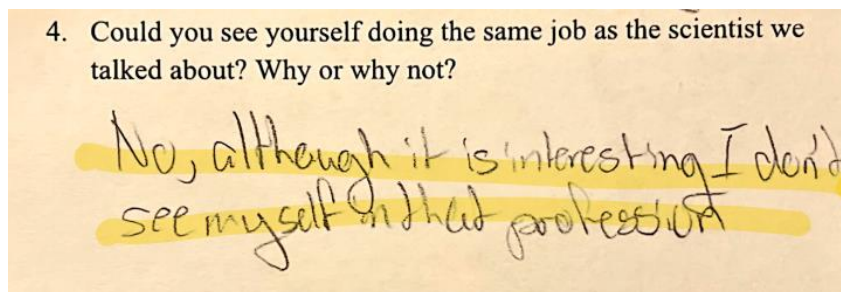 4. Could you see yourself doing the same job as the scientist we
talked about? Why or why not?
No, although it is interesting I don't
see myself in that profession